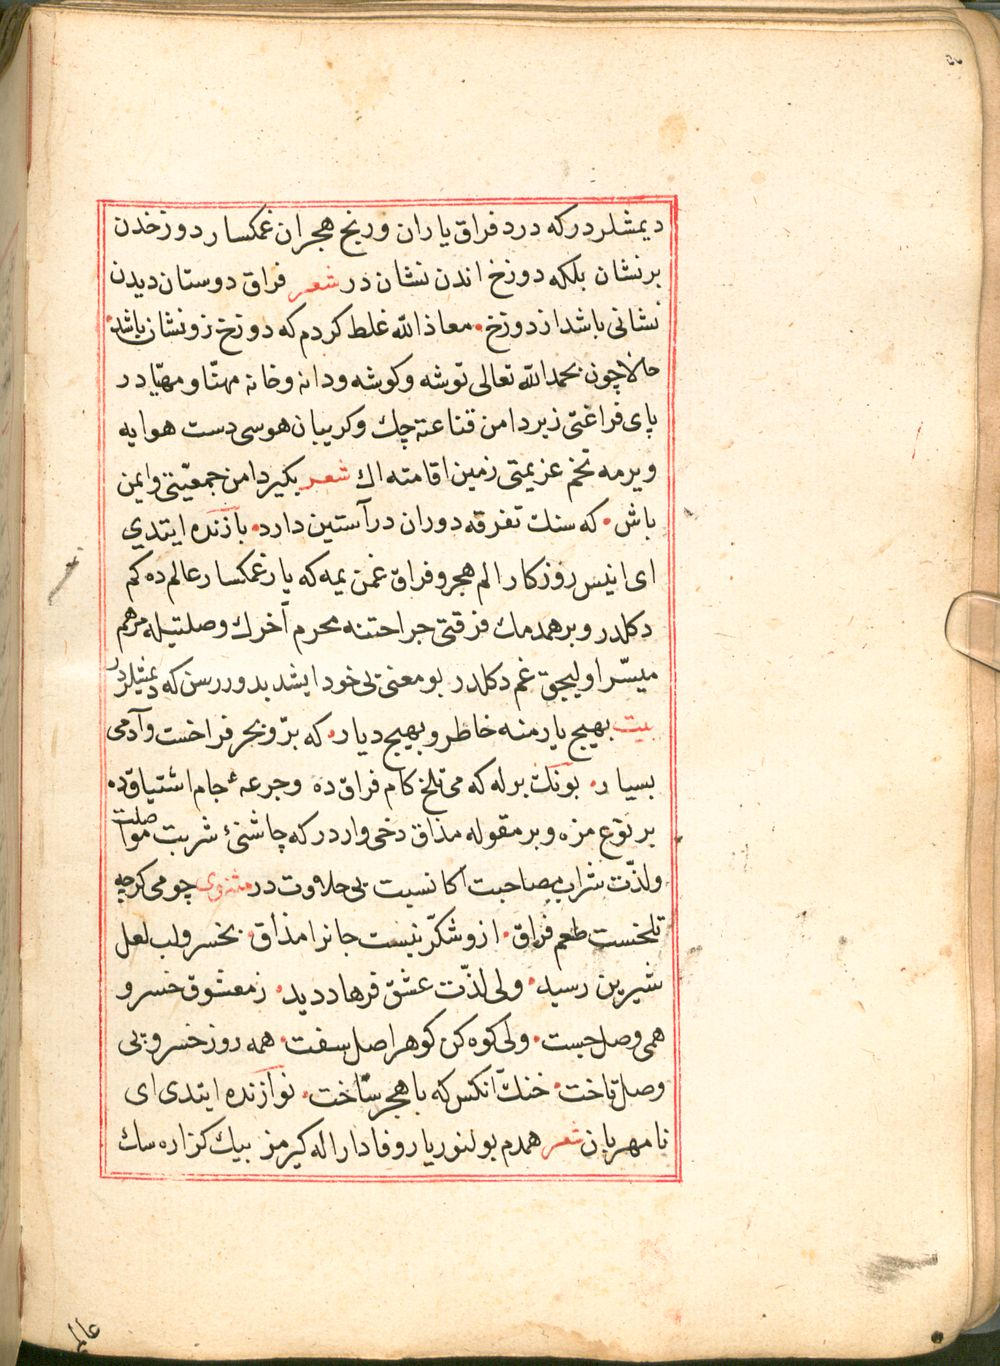 دیمشلردرکه درد فراق یاران ورنج هجران غمکسار دوزخدن
برنشان بلکه دوزخ اندن نشان در شعر فراق دوستان دیدن
نشانی باشد از دوزخ معاذ الله غلط کردم که دوزخ زو نشان باشد
حالا چون بحمد الله تعالی توشه وکوشه ودانه وخانه مهنّا ومهیّادر
پای فراغتی زیر دامن قناعته چك وکریبان هوسی دست هوایه
ویرمه تخم عزیمتی زمین اقامته اك شعر بکیر دامن جمعیّتی وایمن
باش که سنك تفرقه دوران در آستین دارد بازنده ایتدی
ای انیس روزکار الم هجر وفراق غمن یمه که یار غمکسار عالمده کم
دکلدر وبرهمدمك فرقتی جراحتنه محرم آخرك وصلتیله مرهم
میسّر اولیجق غم دکلدر بو معنیّ بی خود ایشدبدوررسن که دیمشلردر
بیت بهیچ یار منه خاطر وبهیچ دیار که برّ وبحر فراخست وآدمی
بسیار بونك برله که می تلخ کام فراقده وجرعهٔ جام اشتیاقده
بر نوع مزه وبر مقوله مذاق دخی واردر که چاشنیٔ شربت مواصلت
ولذّت شراب مصاحبت اکا نسبت بی حلاوت در مثنوی چو می کرچه
تلخست طعم فراق ازو شکّر نیست جانرا مذاق بخسرو لب لعل
شیرین رسید ولی لذّت عشق فرهاد دید ز معشوق خسرو
همی وصل جست ولی کوه کن کوهر اصل سفت همه روز خسرو پی
وصل تاخت خنك آنکس که با هجر ساخت نوازنده ایتدی ای
نامهربان شعر همدم بولنور یار وفادار اله کیرمز بیك کز اره سك
عالمی